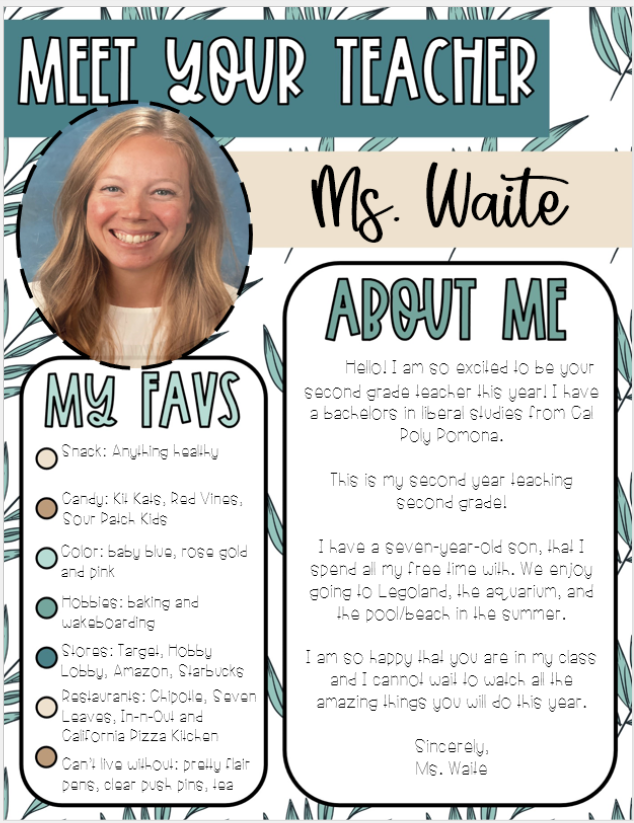 MEET YOUR TEACHER
Ms. Waite
MY FAVS
Snack: Anything healthy
Candy: Kit Kats, Red Vines,
Sour Patch Kids
Color: baby blue, rose gold
and pink
Hobbies: baking and
wakeboarding
Stores: Target, Hobby
Lobby, Amazon, Starbucks
Restaurants: Chipotle, Seven
Leaves, In-n-Out and
California Pizza Kitchen
Can't live without: pretty flair
pens, clear push pins, tea
ABOUT ME
Hello! I am so excited to be your
second grade teacher this year! I have
a bachelors in liberal studies from Cal
Poly Pomona.
This is my second year teaching
second grade!
I have a seven-year-old son, that I
spend all my free time with. We enjoy
going to Legoland, the aquarium, and
the pool/beach in the summer.
I am so happy that you are in my class
and I cannot wait to watch all the
amazing things you will do this year.
Sincerely,
Ms. Waite